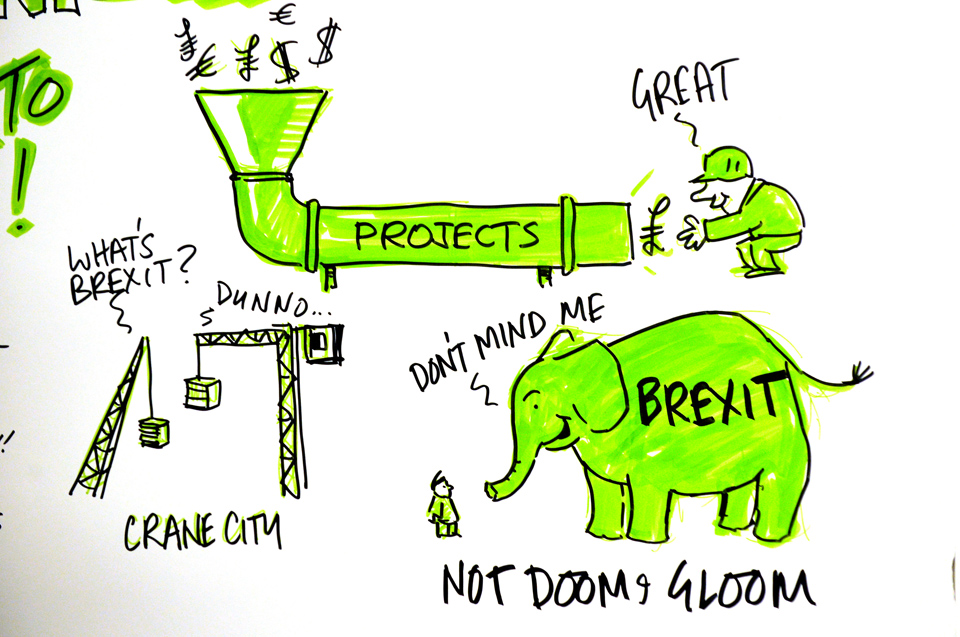 TO
!
€
£ € £ $ $
GREAT
PROJECTS
£
WHAT'S
BREXIT?
DUNNO...
DON'T MIND ME
BREXIT
CRANE CITY
NOT DOOM & GLOOM